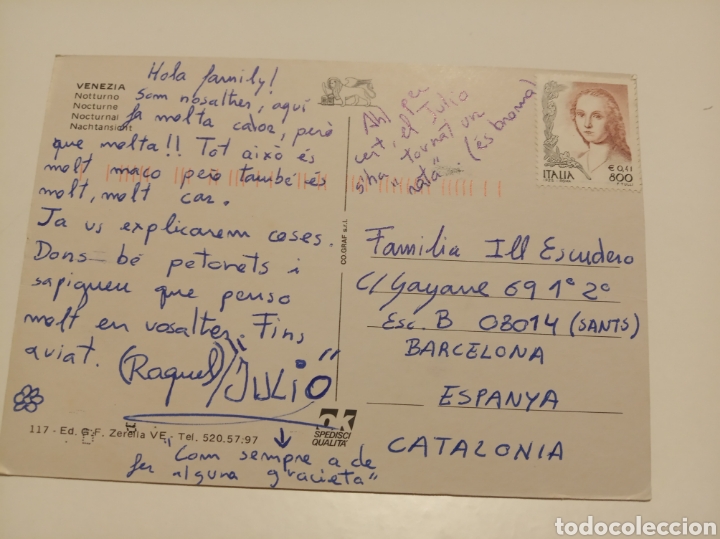 VENEZIA
Notturno
Nocturne
Nocturnal
Nachtansicht
Hola family!
Som nosaltres, aquí
fa molta calor, però
que molta!! Tot això és
molt maco però també és
molt, molt car.
Ja us explicarem coses.
Dons bé petonets i
sapigueu que penso
molt en vosaltres. Fins
aviat. (Raquel) "JULIO"
"Com sempre a de
fer alguna gracieta"
117 - Ed. G.F. Zerella VE - Tel. 520.57.97
CO.GRAF s.r.l.
OK
SPEDISCI
QUALITA'
Ah! per
cert, el Julio
s'ha tornat un
"nata". (és broma)
€ 0,41
ITALIA 800
Familia Ill Escudero
C/ Gayarre 69 1º 2º
Esc. B 08014 (SANTS)
BARCELONA
ESPANYA
CATALONIA
todocoleccion